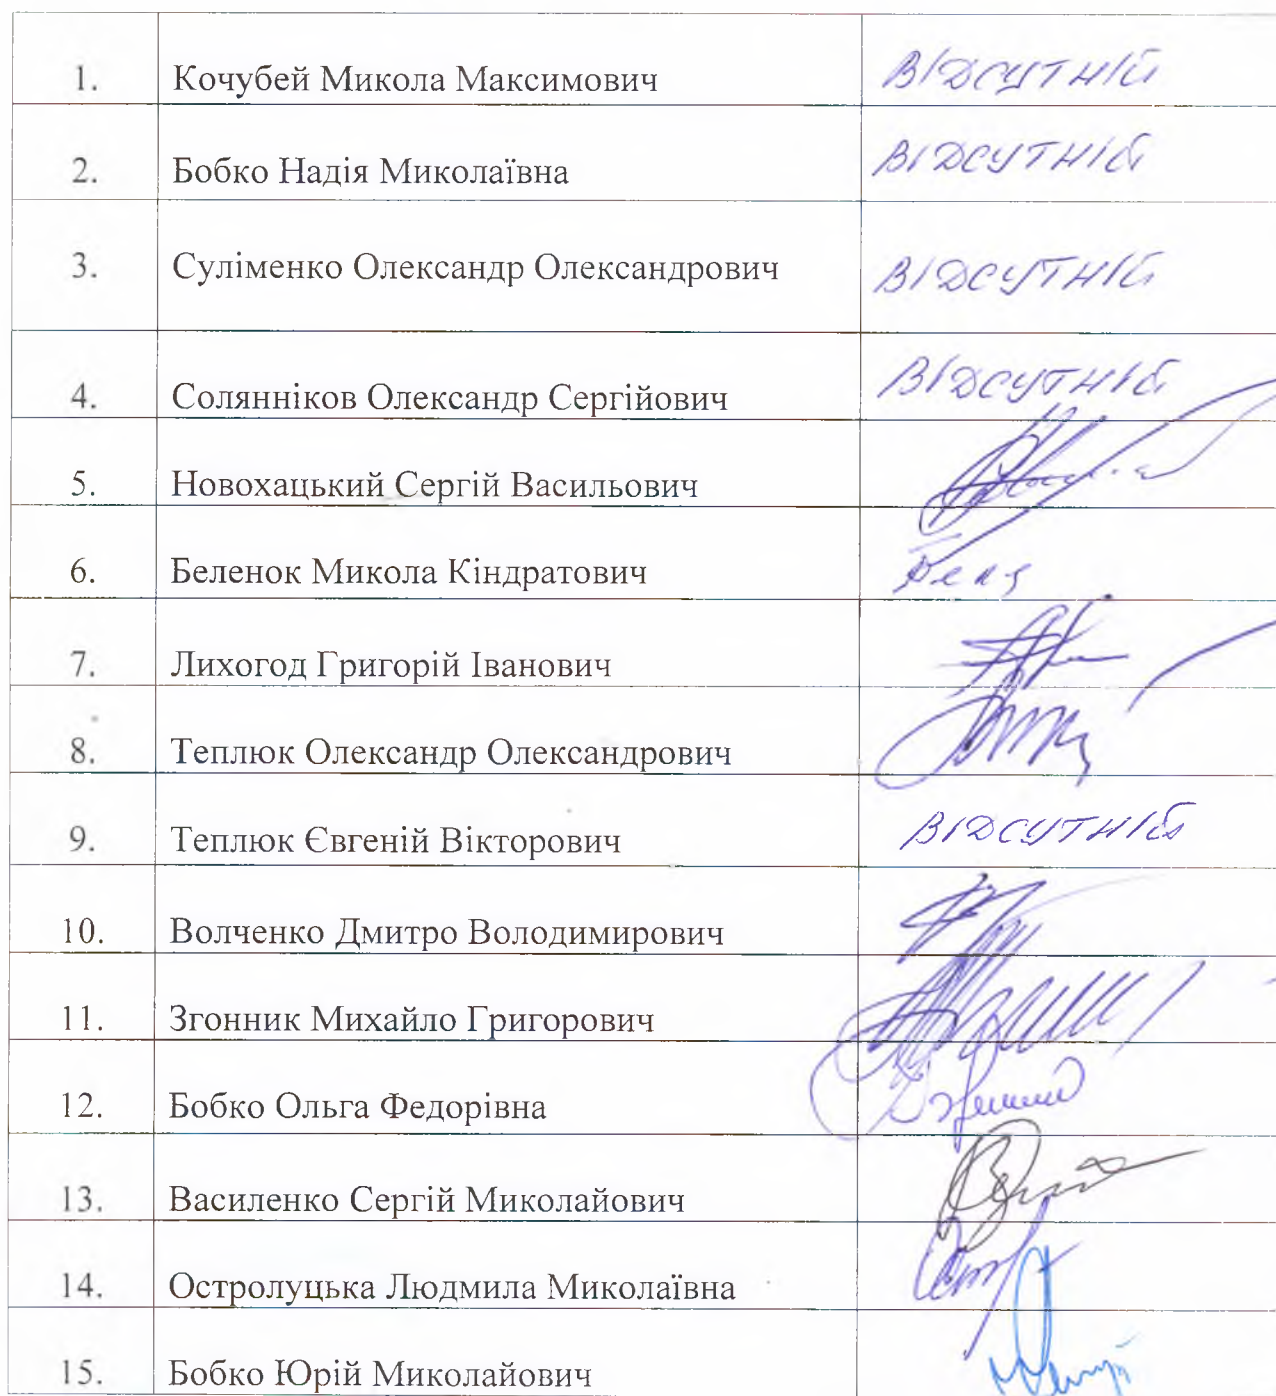 1. Кочубей Микола Максимович відсутній
2. Бобко Надія Миколаївна відсутній
3. Суліменко Олександр Олександрович відсутній
4. Солянніков Олександр Сергійович відсутній
5. Новохацький Сергій Васильович
6. Беленок Микола Кіндратович
7. Лихогод Григорій Іванович
8. Теплюк Олександр Олександрович
9. Теплюк Євгеній Вікторович відсутній
10. Волченко Дмитро Володимирович
11. Згонник Михайло Григорович
12. Бобко Ольга Федорівна
13. Василенко Сергій Миколайович
14. Остролуцька Людмила Миколаївна
15. Бобко Юрій Миколайович